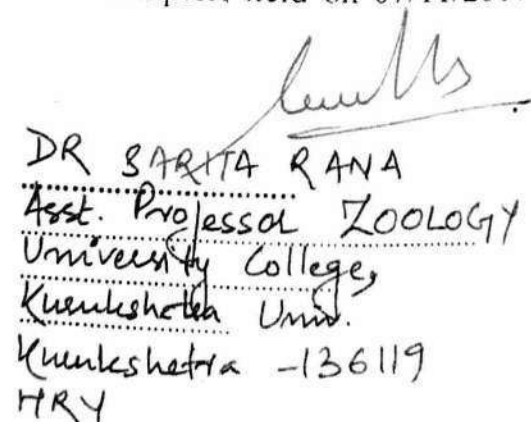 held on 07.11.20
DR SARITA RANA
Asst. Professor ZOOLOGY
University College,
Kurukshetra Univ.
Kurukshetra -136119
HRY